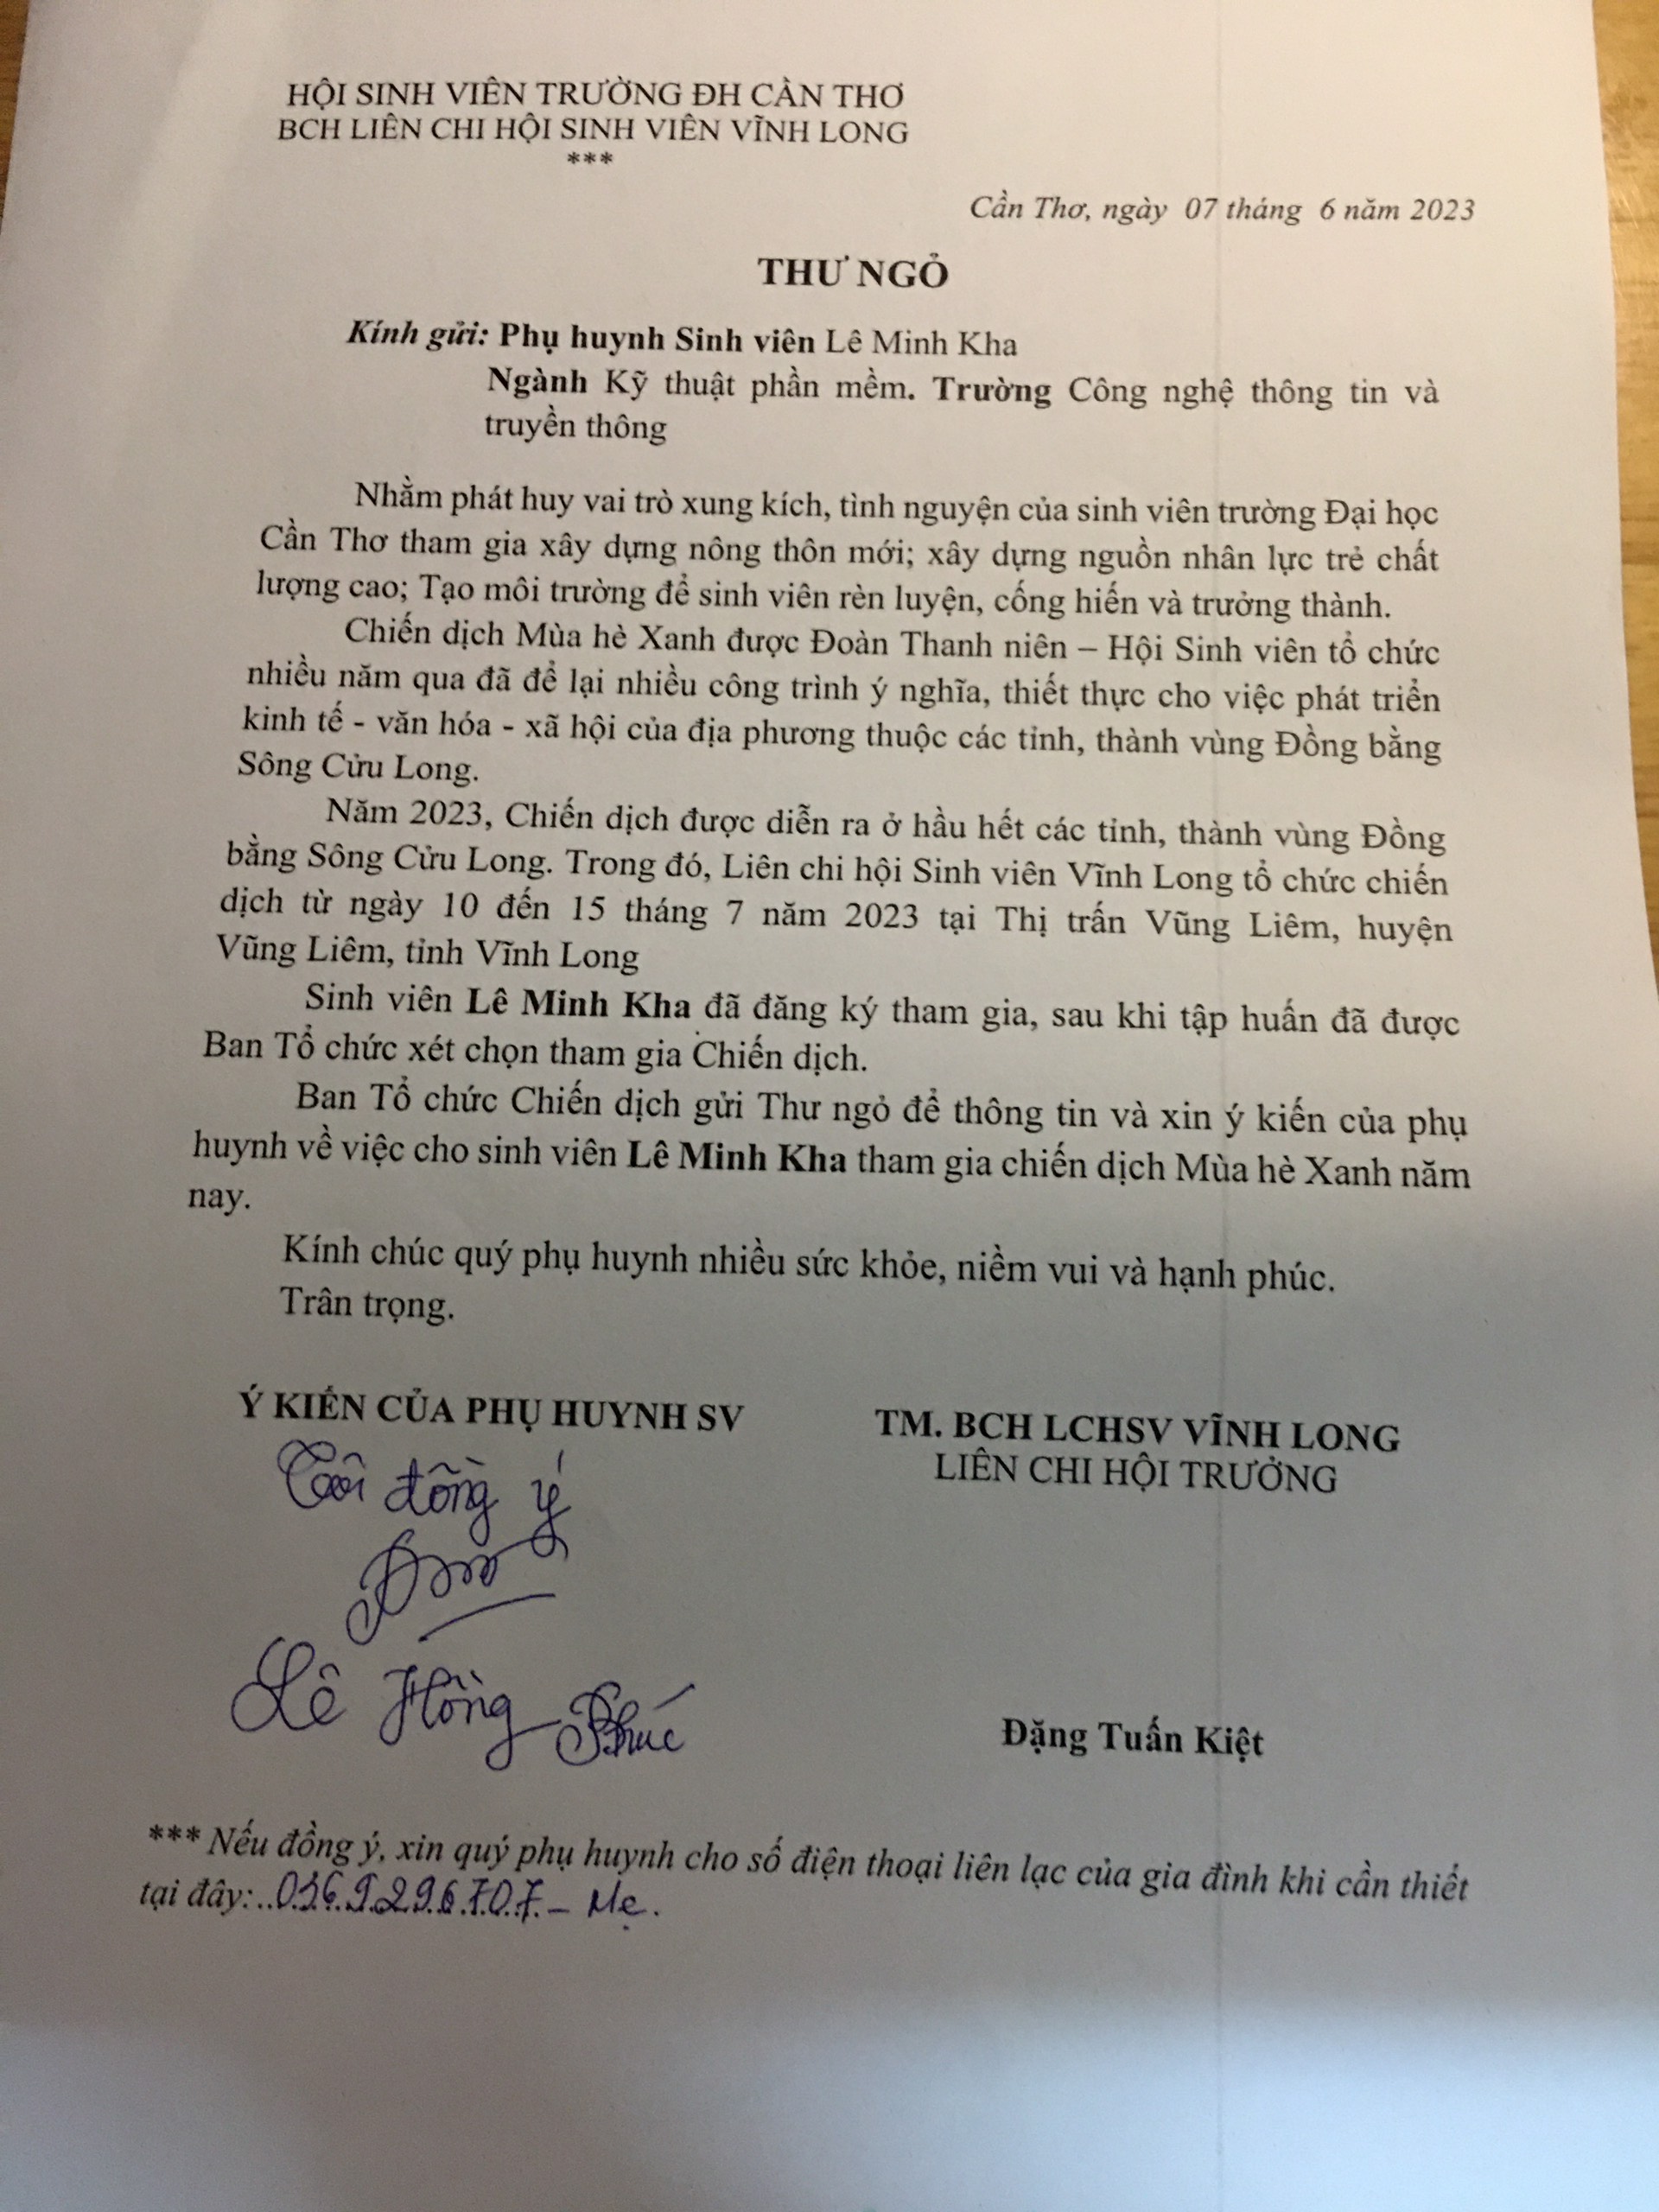 HỘI SINH VIÊN TRƯỜNG ĐH CẦN THƠ
BCH LIÊN CHI HỘI SINH VIÊN VĨNH LONG
***
Cần Thơ, ngày 07 tháng 6 năm 2023
THƯ NGỎ
Kính gửi: Phụ huynh Sinh viên Lê Minh Kha
Ngành Kỹ thuật phần mềm. Trường Công nghệ thông tin và
truyền thông
Nhằm phát huy vai trò xung kích, tình nguyện của sinh viên trường Đại học
Cần Thơ tham gia xây dựng nông thôn mới; xây dựng nguồn nhân lực trẻ chất
lượng cao; Tạo môi trường để sinh viên rèn luyện, cống hiến và trưởng thành.
Chiến dịch Mùa hè Xanh được Đoàn Thanh niên – Hội Sinh viên tổ chức
nhiều năm qua đã để lại nhiều công trình ý nghĩa, thiết thực cho việc phát triển
kinh tế - văn hóa - xã hội của địa phương thuộc các tỉnh, thành vùng Đồng bằng
Sông Cửu Long.
Năm 2023, Chiến dịch được diễn ra ở hầu hết các tỉnh, thành vùng Đồng
bằng Sông Cửu Long. Trong đó, Liên chi hội Sinh viên Vĩnh Long tổ chức chiến
dịch từ ngày 10 đến 15 tháng 7 năm 2023 tại Thị trấn Vũng Liêm, huyện
Vũng Liêm, tỉnh Vĩnh Long
Sinh viên Lê Minh Kha đã đăng ký tham gia, sau khi tập huấn đã được
Ban Tổ chức xét chọn tham gia Chiến dịch.
Ban Tổ chức Chiến dịch gửi Thư ngỏ để thông tin và xin ý kiến của phụ
huynh về việc cho sinh viên Lê Minh Kha tham gia chiến dịch Mùa hè Xanh năm
nay.
Kính chúc quý phụ huynh nhiều sức khỏe, niềm vui và hạnh phúc.
Trân trọng.
Ý KIẾN CỦA PHỤ HUYNH SV
Tôi đồng ý
Lê Hồng Phúc
TM. BCH LCHSV VĨNH LONG
LIÊN CHI HỘI TRƯỞNG
Đặng Tuấn Kiệt
*** Nếu đồng ý, xin quý phụ huynh cho số điện thoại liên lạc của gia đình khi cần thiết
tại đây: – Mẹ.